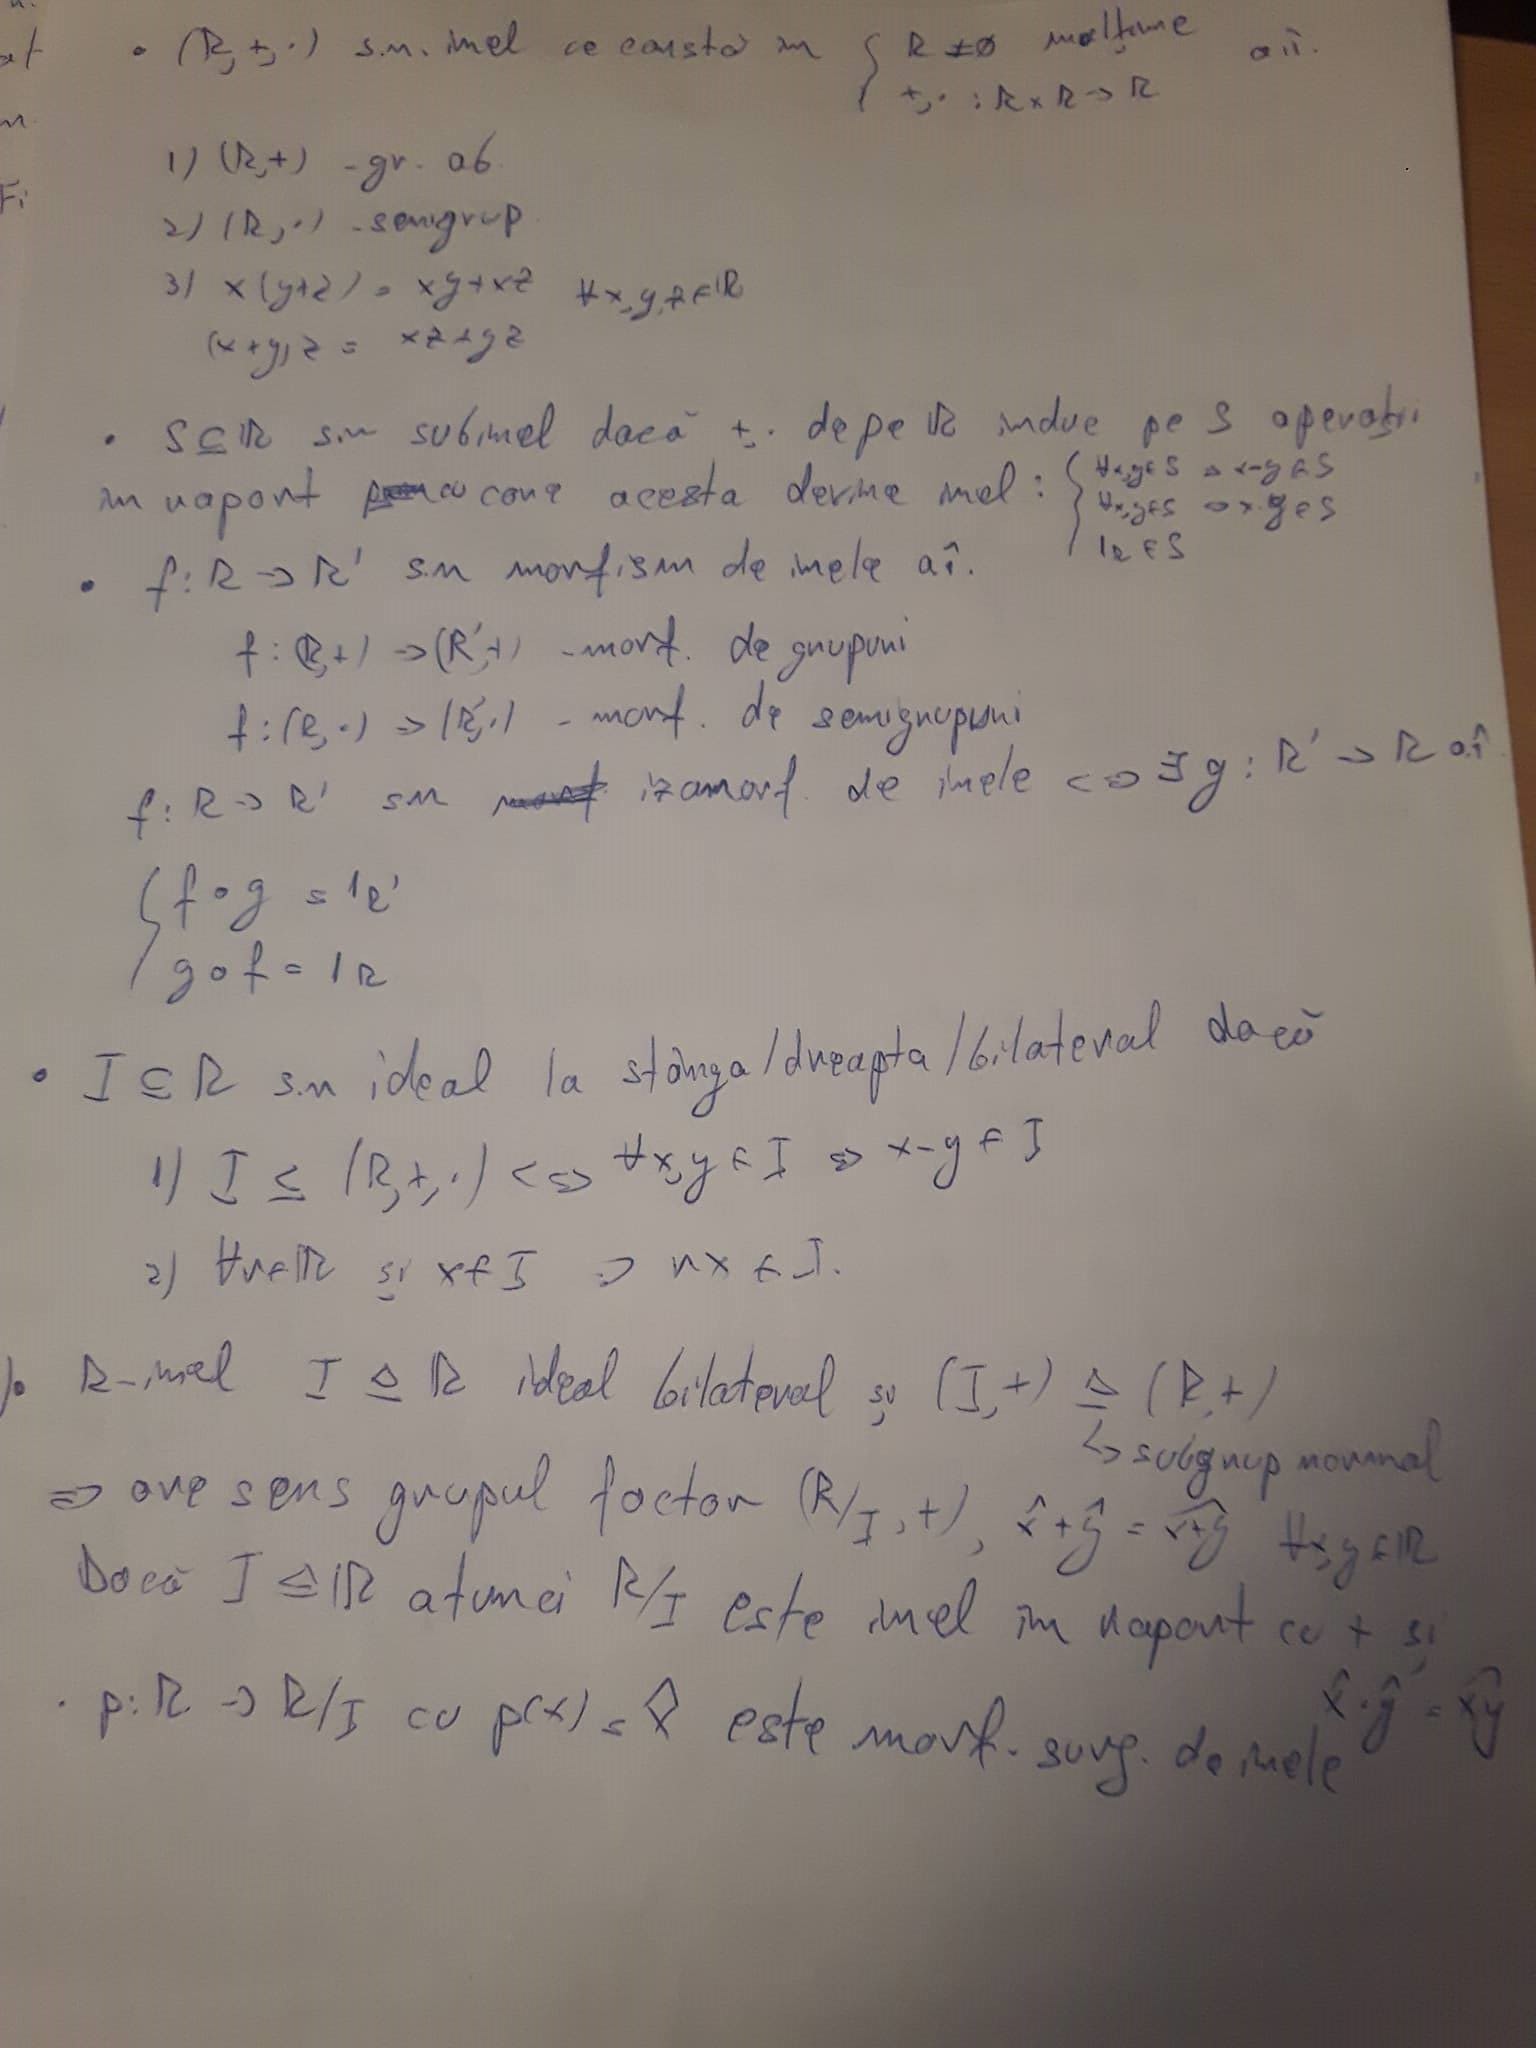 • (R,+,·) s.n. inel ce constă în { R ≠ ∅ mulțime aî.
+,· : R x R → R
1) (R,+) - gr. ab.
2) (R,·) - semigrup
3) x(y+z) = xy+xz ∀x,y,z∈R
(x+y)z = xz+yz
• S⊆R s.n subinel dacă +,· de pe R induc pe S operații
în raport cu care acesta devine inel : { ∀x,y∈S ⇒ x-y∈S
∀x,y∈S ⇒ x·y∈S
1R∈S
• f: R → R' s.n morfism de inele aî.
f: (R,+) → (R',+) - morf. de grupuri
f: (R,·) → (R',·) - morf. de semigrupuri
f: R → R' s.n izomorf. de inele <=> ∃ g: R' → R aî.
{ f∘g = 1R'
g∘f = 1R
• I ⊆ R s.n ideal la stânga/dreapta/bilateral dacă
1) I ≤ (R,+,·) <=> ∀x,y∈I => x-y∈I
2) ∀r∈R și x∈I => rx∈I.
• R-inel I ⊴ R ideal bilateral și (I,+) ⊴ (R,+)
↳ subgrup normal
=> are sens grupul factor (R/I,+), x̂+ŷ = \widehat{x+y} ∀x,y∈R
Dacă I ⊴ R atunci R/I este inel în raport cu + și
x̂·ŷ = \widehat{xy}
· p: R → R/I cu p(x) = x̂ este morf. surj. de inele